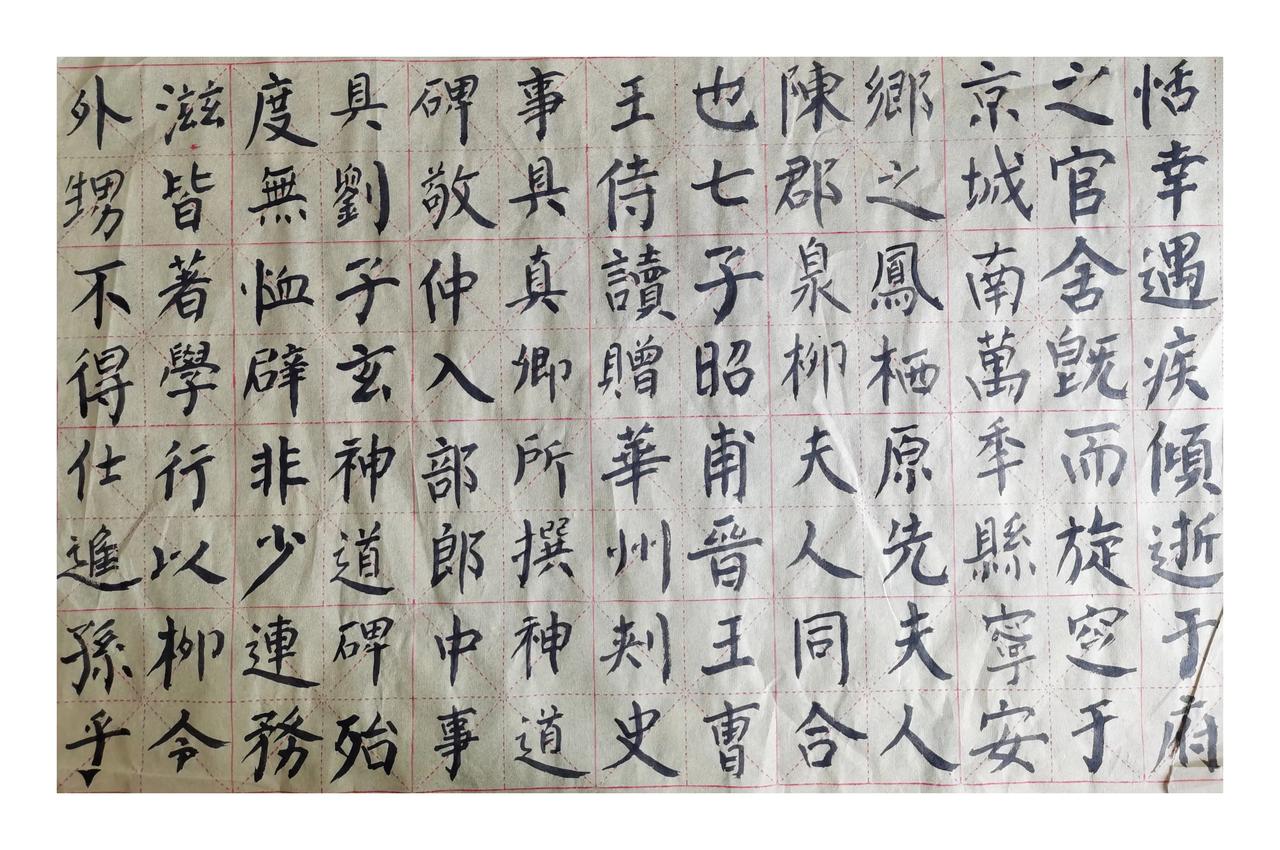 恬幸遇疾傾逝于府
之官舍既而旋窆于
京城南萬秊縣寧安
鄉之鳳栖原先夫人
陳郡泉柳夫人同合
也七子昭甫晉王曹
王侍讀贈華州刾史
事具真卿所撰神道
碑敬仲入部郎中事
具劉子玄神道碑殆
度無恤辟非少連務
滋皆著學行以柳令
外甥不得仕進孫乎